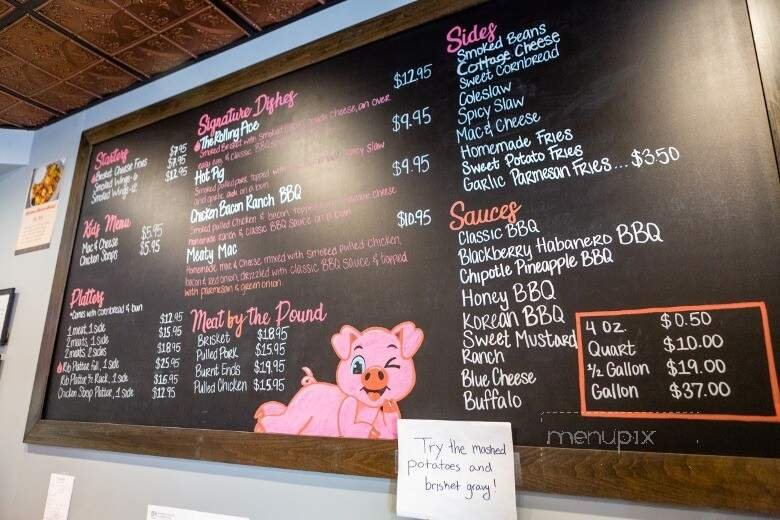 Starters
Smoked Cheese Fries $7.95
Smoked Wings-6 $7.95
Smoked Wings-12 $12.95
Kids Menu
Mac & Cheese $5.95
Chicken Strips $5.95
Platters
*Comes with cornbread & bun
1 meat, 1 side $12.95
2 meats, 1 side $15.95
2 meats, 2 sides $18.95
Rib Platter full, 1 side $25.95
Rib Platter ½ Rack, 1 side $16.95
Chicken Strip Platter, 1 side $12.95
Signature Dishes
The Rolling Pice $12.95
Smoked Brisket with Smoked cheese, an over
easy egg, & Classic BBQ
Hot Pig $9.95
Smoked pulled pork topped with Spicy Slaw
and garlic aioli on a bun
Chicken Bacon Ranch BBQ $9.95
Smoked pulled Chicken & bacon topped cheese
homemade ranch & classic BBQ Sauce on a bun.
Meaty Mac $10.95
Homemade mac & Cheese mixed with Smoked pulled chicken,
bacon & red onion, drizzled with classic BBQ Sauce & topped
with parmesan & green onion.
Meat by the Pound
Brisket $18.95
Pulled Pork $15.95
Burnt Ends $19.95
Pulled Chicken $15.95
Sides
Smoked Beans
Cottage Cheese
Sweet Cornbread
Coleslaw
Spicy Slaw
Mac & Cheese
Homemade Fries
Sweet Potato Fries
Garlic Parmesan Fries...$3.50
Sauces
Classic BBQ
Blackberry Habanero BBQ
Chipotle Pineapple BBQ
Honey BBQ
Korean BBQ
Sweet Mustard
Ranch
Blue Cheese
Buffalo
4 oz. $0.50
Quart $10.00
½ Gallon $19.00
Gallon $37.00
Try the mashed
potatoes and
brisket gravy!
menupix